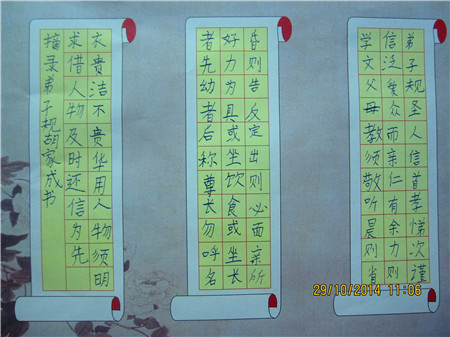 弟子规圣人信首孝悌次谨
信泛爱众而亲仁有余力则
学文父母教须敬听晨则省
昏则告反定出则必面亲所
好力为具或坐饮食或坐长
者先幼者后称尊长勿呼名
衣贵洁不贵华用人物须明
求借人物及时还信为先
摘录弟子规胡家成书
29/10/2014 11:06